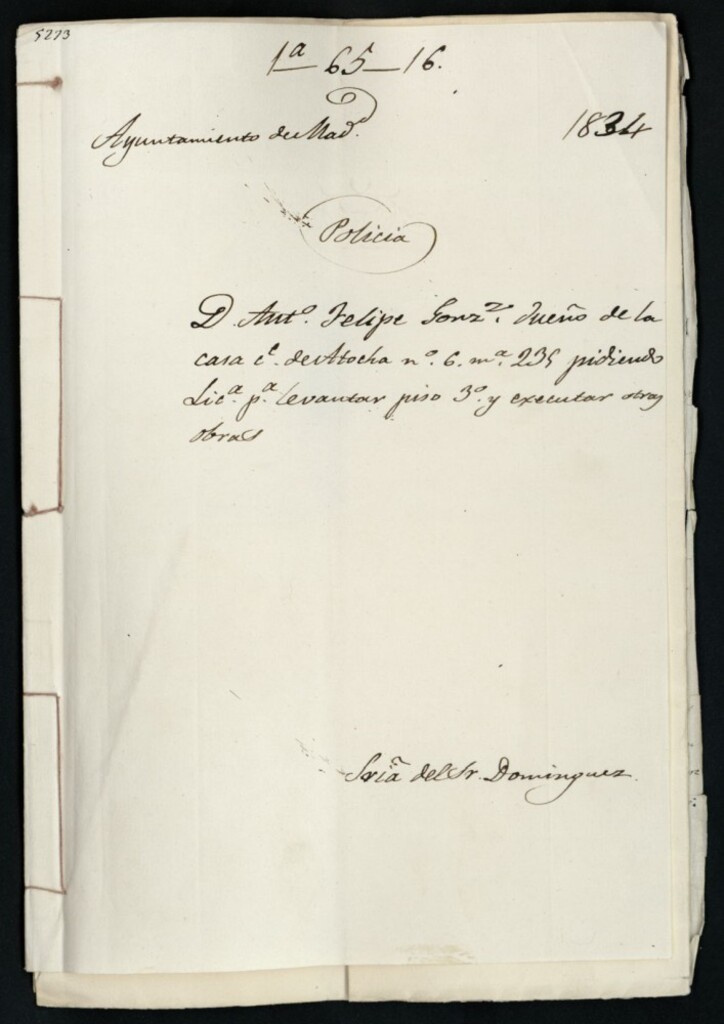 5273
1ª 65-16.
Ayuntamiento de Madᵈ.
1834
Policia
D. Antº. Felipe Gonzᶻ. dueño de la
casa cᵉ. de Atocha nº. 6. mª. 235 pidiendo
Licª. pª. levantar piso 3º. y executar otras
obras
Sriã del Sr. Dominguez.